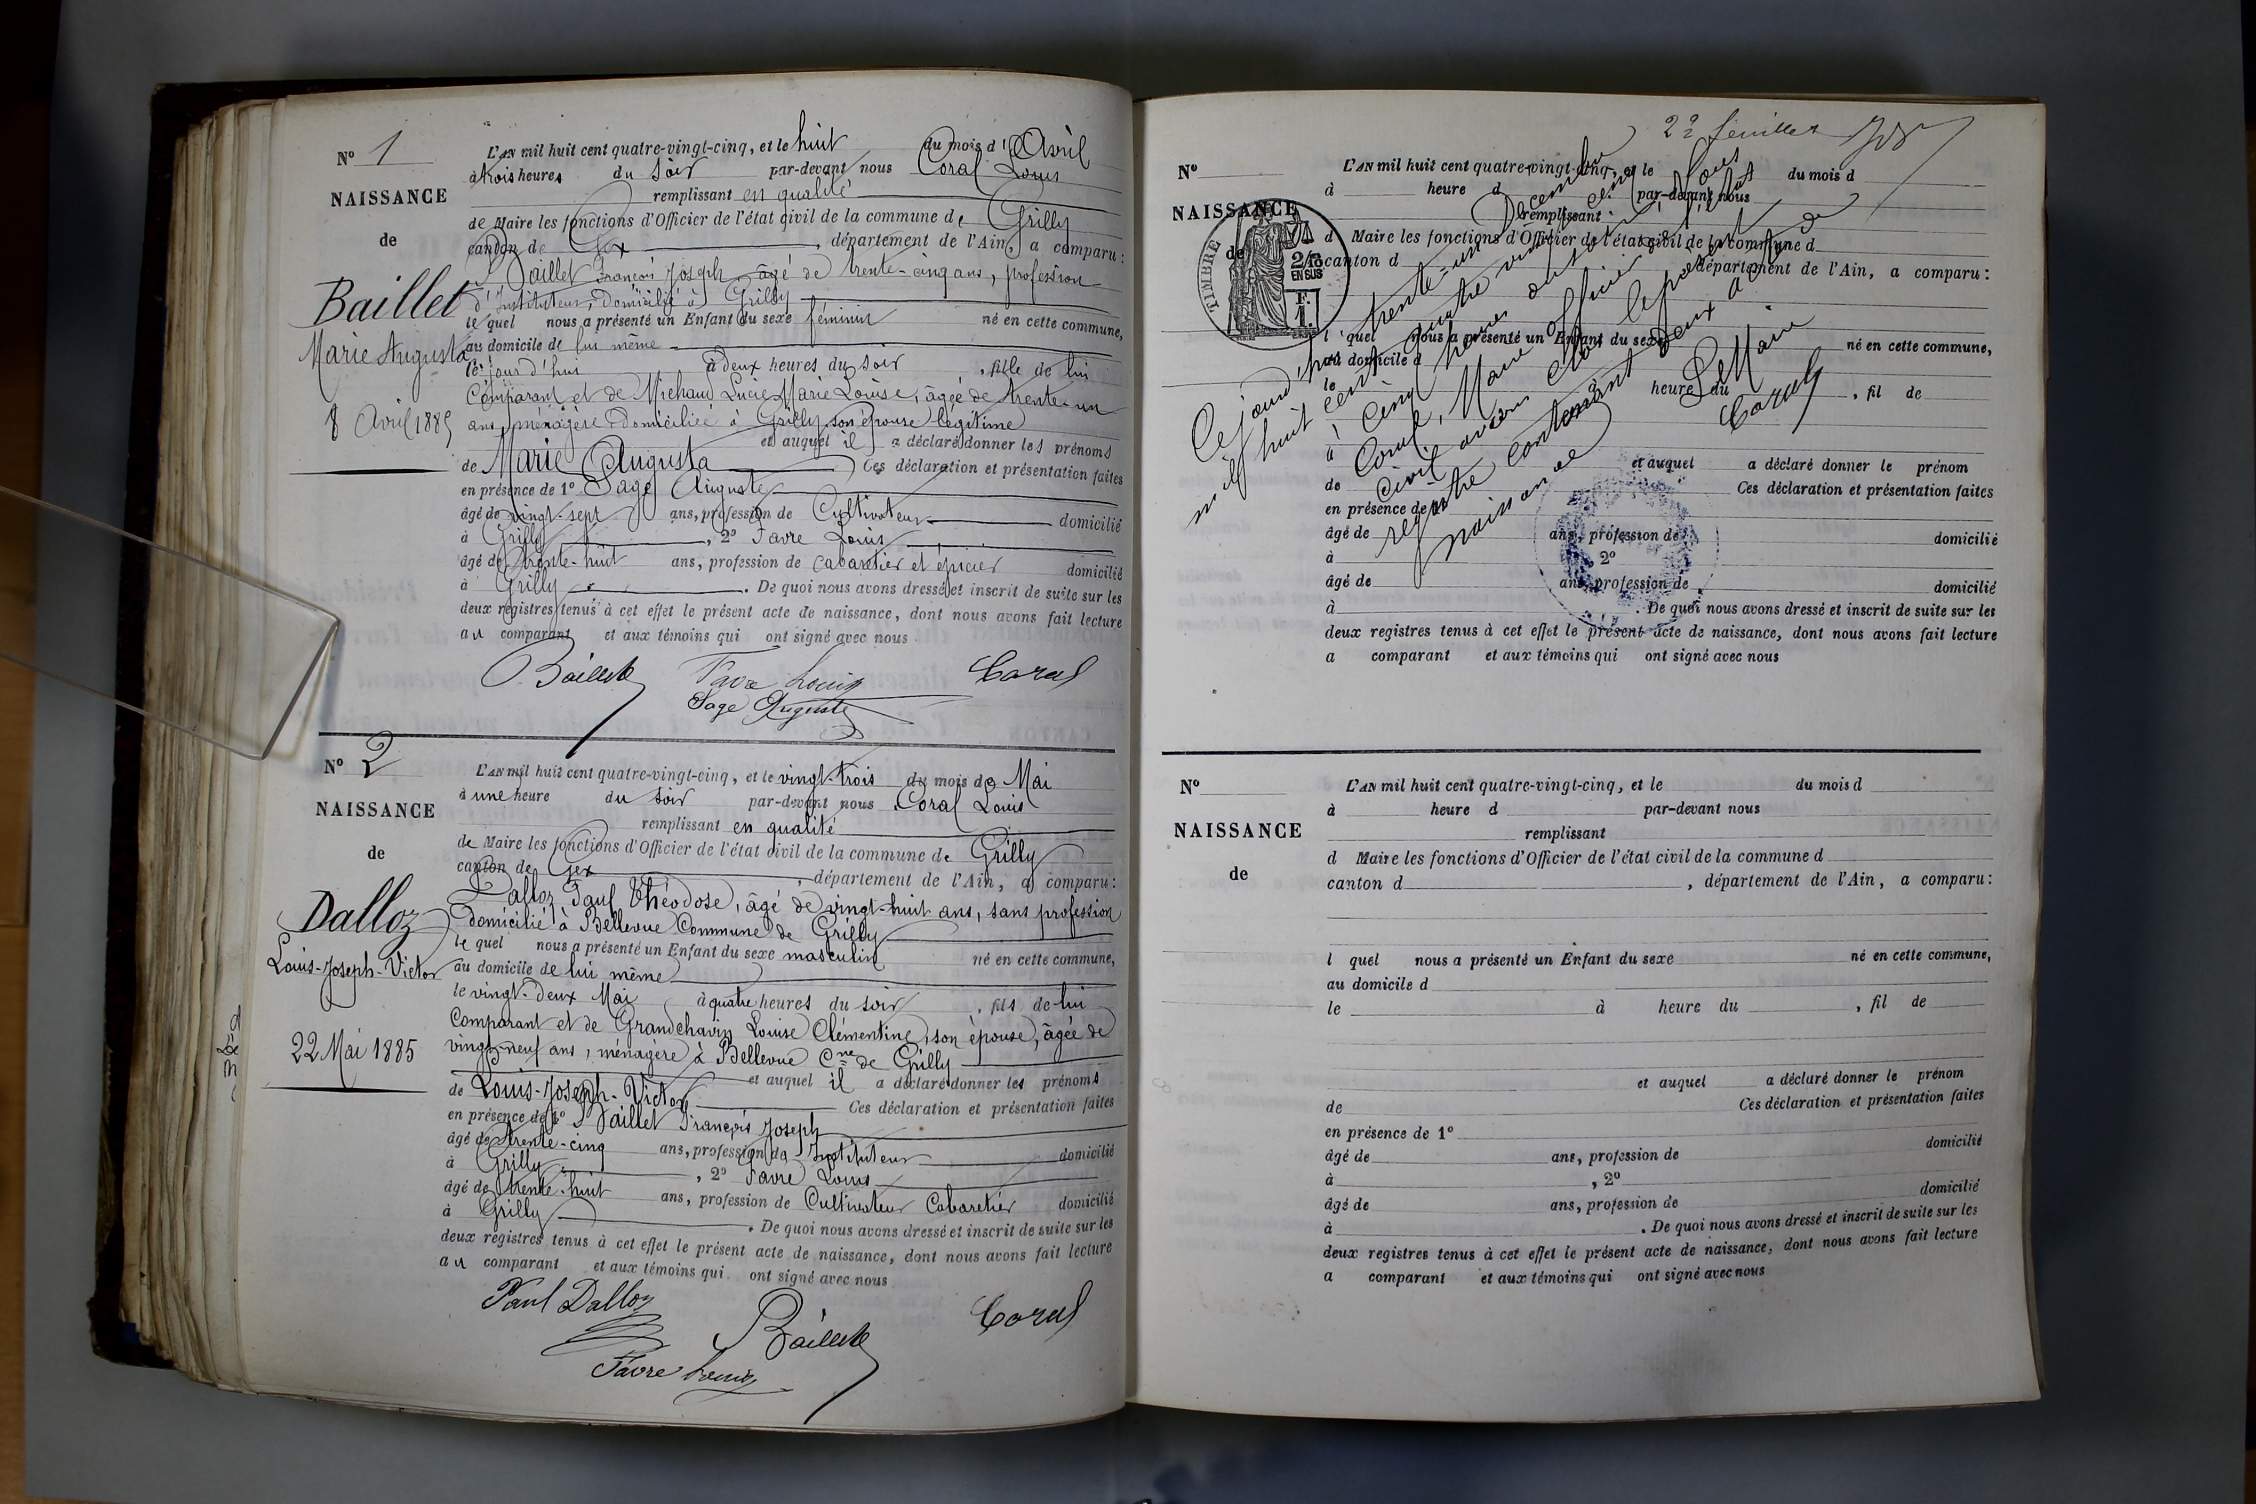 N° 1
NAISSANCE
de
Baillet
Marie Augusta
8 Avril 1885
L'AN mil huit cent quatre-vingt-cinq, et le huit du mois d'Avril
à trois heures du soir par-devant nous Coral Louis
remplissant en qualité
de Maire les fonctions d'Officier de l'état civil de la commune de Grilly
canton de Gex, département de l'Ain, a comparu :
Baillet François Joseph, âgé de trente-cinq ans, profession
d'Instituteur, domicilié à Grilly
lequel nous a présenté un Enfant du sexe féminin né en cette commune,
au domicile de lui même
le jour d'hui à deux heures du soir, fille de lui
Comparant et de Michaud Lucie Marie Louise, âgée de trente-un
ans, ménagère domiciliée à Grilly son épouse légitime
et auquel il a déclaré donner les prénoms
de Marie Augusta Ces déclaration et présentation faites
en présence de 1° Sage Auguste
âgé de vingt-sept ans, profession de Cultivateur domicilié
à Grilly, 2° Favre Louis
âgé de trente-huit ans, profession de cabaretier et épicier domicilié
à Grilly. De quoi nous avons dressé et inscrit de suite sur les
deux registres tenus à cet effet le présent acte de naissance, dont nous avons fait lecture
au comparant et aux témoins qui ont signé avec nous
Baillet Favre Louis Coral
Sage Auguste
N° 2
NAISSANCE
de
Dalloz
Louis-Joseph-Victor
22 Mai 1885
L'AN mil huit cent quatre-vingt-cinq, et le vingt-trois du mois de Mai
à une heure du soir par-devant nous Coral Louis
remplissant en qualité
de Maire les fonctions d'Officier de l'état civil de la commune de Grilly
canton de Gex, département de l'Ain, a comparu :
Dalloz Paul Théodose, âgé de vingt-huit ans, sans profession
domicilié à Bellevue Commune de Grilly
lequel nous a présenté un Enfant du sexe masculin né en cette commune,
au domicile de lui même
le vingt-deux Mai à quatre heures du soir, fils de lui
Comparant et de Grandchavin Louise Clémentine, son épouse, âgée de
vingt-neuf ans, ménagère à Bellevue Cne de Grilly
et auquel il a déclaré donner les prénoms
de Louis-Joseph-Victor Ces déclaration et présentation faites
en présence de 1° Baillet François Joseph
âgé de trente-cinq ans, profession de Instituteur domicilié
à Grilly, 2° Favre Louis
âgé de trente-huit ans, profession de Cultivateur Cabaretier domicilié
à Grilly. De quoi nous avons dressé et inscrit de suite sur les
deux registres tenus à cet effet le présent acte de naissance, dont nous avons fait lecture
au comparant et aux témoins qui ont signé avec nous
Paul Dalloz Baillet Coral
Favre Louis
22 feuillet
N°
NAISSANCE
de
TIMBRE
2/10
EN SUS
F.
1.
L'AN mil huit cent quatre-vingt-cinq, et le du mois d
à heure d par-devant nous
remplissant
d Maire les fonctions d'Officier de l'état civil de la commune d
canton d département de l'Ain, a comparu :
l quel nous a présenté un Enfant du sexe né en cette commune,
au domicile d
le à heure du, fil de
et auquel a déclaré donner le prénom
de Ces déclaration et présentation faites
en présence de 1°
âgé de ans, profession de domicilié
à 2°
âgé de ans, profession de domicilié
à. De quoi nous avons dressé et inscrit de suite sur les
deux registres tenus à cet effet le présent acte de naissance, dont nous avons fait lecture
a comparant et aux témoins qui ont signé avec nous
Ce jourd'hui trente-un Décembre
mil huit cent quatre vingt cinq
à cinq heures du soir, Nous
Coral, Maire officier de l'état
civil avons clos le présent
registre contenant deux actes de
naissance
Le Maire
Coral
N°
NAISSANCE
de
L'AN mil huit cent quatre-vingt-cinq, et le du mois d
à heure d par-devant nous
remplissant
d Maire les fonctions d'Officier de l'état civil de la commune d
canton d, département de l'Ain, a comparu :
l quel nous a présenté un Enfant du sexe né en cette commune,
au domicile d
le à heure du, fil de
et auquel a déclaré donner le prénom
de Ces déclaration et présentation faites
en présence de 1°
âgé de ans, profession de domicilié
à, 2°
âgé de ans, profession de domicilié
à. De quoi nous avons dressé et inscrit de suite sur les
deux registres tenus à cet effet le présent acte de naissance, dont nous avons fait lecture
a comparant et aux témoins qui ont signé avec nous